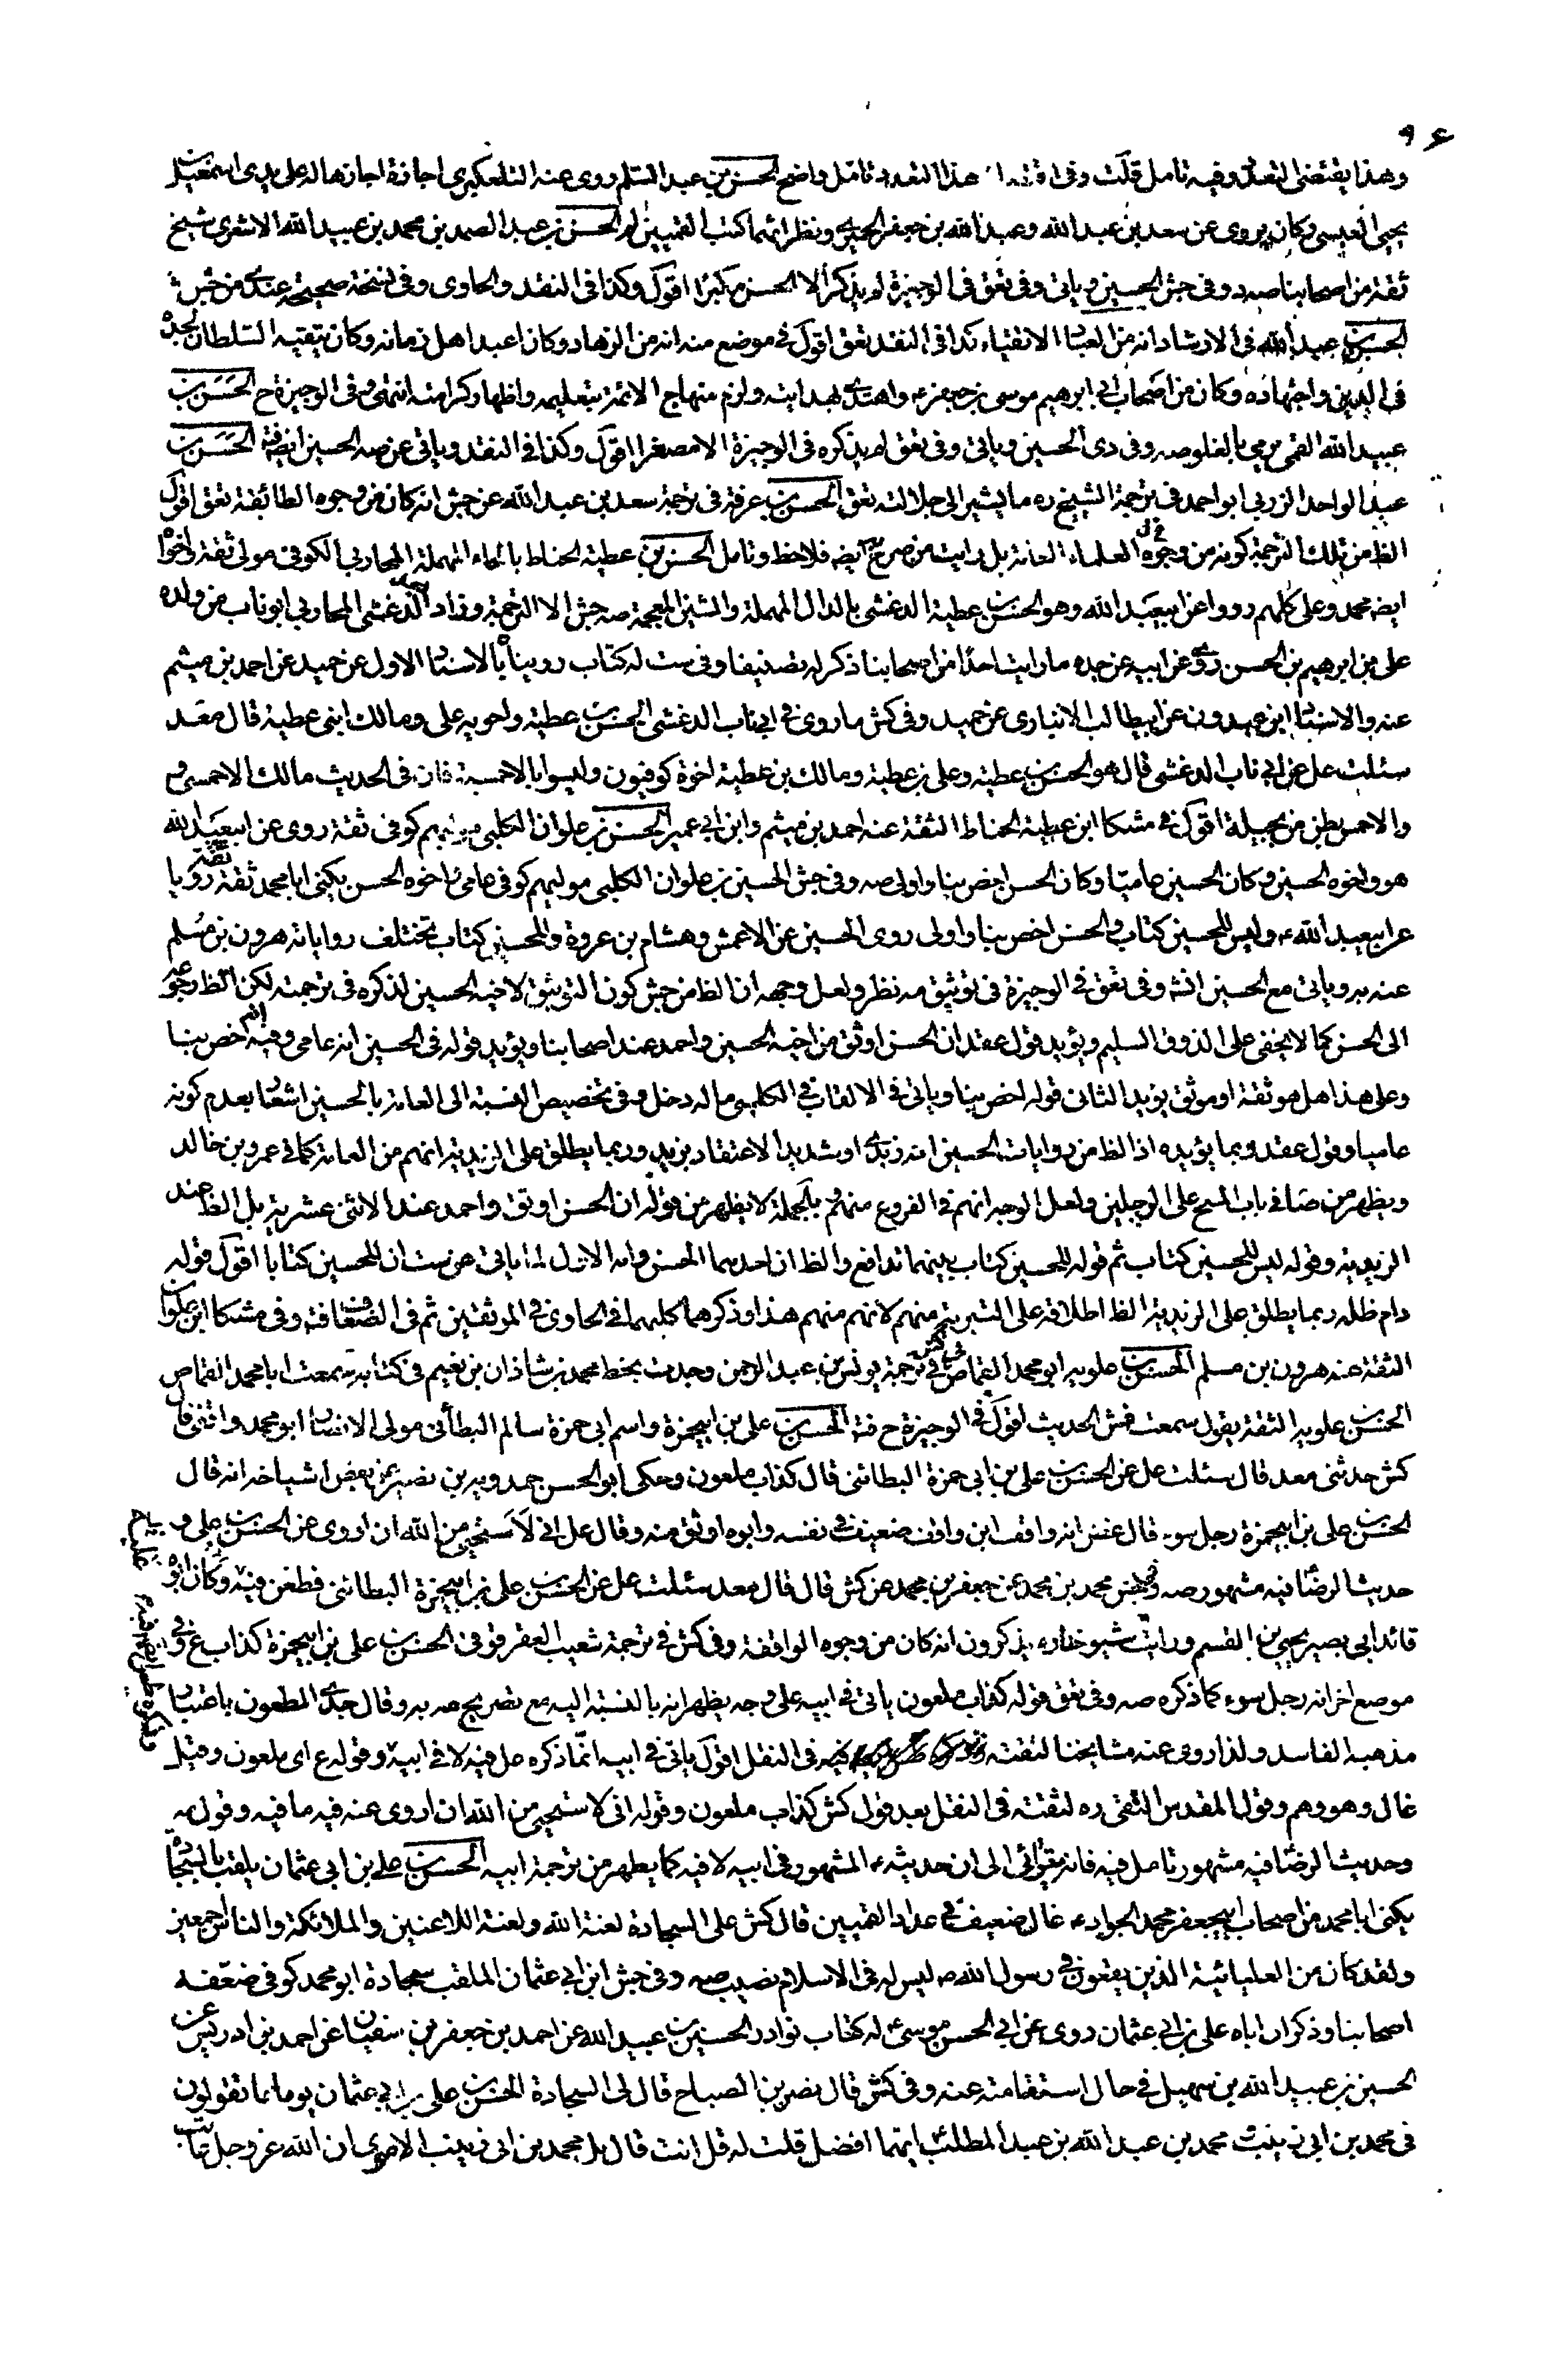 ٩٦
وهذا يقتضى التعدد وفيه تامل قلت وفى اقتضاء هذا التعدد تامل واضح الحسن بن عبد السلم روى عنه التلعكبرى اجازة اجازها له على يدى اسمعيل بن
يحيى العبسى وكان يروى عن سعد بن عبد الله وعبد الله بن جعفر الحميرى ونظرائهما كتب القميين لم الحسن بن عبد الصمد بن محمد بن عبيد الله الاشعرى شيخ
ثقة من اصحابنا صه د وفى جش الحسين وياتى وفى تعق فى الوجيزة لم يذكر الا الحسن مكبرا اقول وكذا فى النقد والحاوى وفى نسخة صحيحة عندى من جش
الحسن بن عبد الله فى الارشاد انه من العباد الاتقياء كذا فى النقد تعق اقول فى موضع منه انه من الزهاد وكان اعبد اهل زمانه وكان يتقيه السلطان لجده
فى الدين واجتهاده وكان من اصحاب ابى ابرهيم موسى بن جعفر ع واهتدى بهدايته ولزم منهاج الائمة بتعليمه واظهار كرامته انتهى وفى الوجيزة ح الحسن بن
عبيد الله القمى يرمى بالغلو صه وفى دى الحسين وياتى وفى تعق لم يذكره فى الوجيزة الا مصغرا اقول وكذا فى النقد وياتى عن صه الحسين ايضا فتد الحسن بن
عبد الواحد الزربى ابو احمد فى ترجمة الشيخ ره ما يشير الى جلالته تعق الحسن بن عرفة فى ترجمة سعد بن عبد الله عن جش انه كان من وجوه الطائفة تعق اقول
الظ من تلك الترجمة كونه من وجوه العلماء العامة بل رايت من صرح به ايضه فلاحظ وتامل الحسن بن عطية الحناط بالحاء المهملة المحاربى الكوفى مولى ثقة واخواه
ايضه محمد وعلى كلهم رووا عن ابيعبد الله وهو الحسن بن عطية الدغشى بالدال المهملة والشين المعجمة صه جش الا الترجمة وزاد الدغشى المحاربى ابو ناب من ولده
على بن ابرهيم بن الحسن روى عن ابيه عن جده ما رايت احدا من اصحابنا ذكر له تصنيفا وفى ست له كتاب رويناه بالاسناد الاول عن حميد عن احمد بن ميثم
عنه والاسناد ابن عبدون عن ابيطالب الانبارى عن حميد وفى كش ما روى فى ابى ناب الدغشى الحسن بن عطية واخويه على ومالك ابنى عطية قال محمد
سئلت عل عن ابى ناب الدغشى قال هو الحسن بن عطية وعلى بن عطية ومالك بن عطية اخوة كوفيون وليسوا بالاحمسية فان فى الحديث مالك الاحمسى و
والاحمس بطن من بجيلة اقول فى مشكا ابن عطية الحناط الثقة عنه احمد بن ميثم وابن ابى عمير الحسن بن علوان الكلبى مولاهم كوفى ثقة روى عن ابيعبد الله
هو واخوه الحسين وكان الحسين عاميا وكان الحسن اخص بنا واولى صه وفى جش الحسين بن علوان الكلبى مولاهم كوفى عامى واخوه الحسن يكنى ابا محمد ثقة رويا
عن ابيعبد الله ع وليس للحسين كتاب والحسن اخص بنا واولى روى الحسين عن الاعمش وهشام بن عروة وللحسين كتاب تختلف رواياته هرون بن مسلم
عنه به وياتى مع الحسين انشه وفى تعق فى الوجيزة فى توثيق صه نظر ولعل وجهه ان الظ من جش كون التوثيق لاخيه الحسين لذكره فى ترجمته لكن الظ رجوعه
الى الحسن كما لا يخفى على الذوق السليم ويؤيد قول عقد ان الحسن اوثق من اخيه الحسين واحمد عند اصحابنا ويؤيد قوله فى الحسين انه عامى وفيه انه اخص بنا
وعلى هذا هل هو ثقة او موثق يؤيد الثانى قوله اخص بنا وياتى فى الالقاب فى الكلبى ما له دخل وفى تخصيص النسبة الى العامة بالحسين اشعار بعدم كونه
عاميا وقول عقد ربما يؤيده اذ الظ من روايات الحسين انه زيدى او شديد الاعتقاد بزيد وربما يطلق على الزيدية انهم من العامة كما فى عمرو بن خالد
ويظهر من صا فى باب المسح على الرجلين ولعل الوجه انهم فى الفروع منهم وبالجملة لا يظهر من قوله ان الحسن اوثق واحمد عند الاثنى عشرية بل الظ عند
الزيدية وقوله ليس للحسين كتاب ثم قوله للحسين كتاب بينهما تدافع والظ ان احدهما الحسن وانه الاول لما ياتى عن ست ان للحسين كتابا اقول قوله
دام ظله ربما يطلق على الزيدية الظ اطلاقه على البترية منهم لانهم منهم هذا وذكرهما كليهما فى الحاوى فى الموثقين ثم فى الضعاف فته وفى مشكا ابن علوان
الثقة عنه هرون بن مسلم الحسن بن علويه ابو محمد القماص فى كش فى ترجمة يونس بن عبد الرحمن وجدت بخط محمد بن شاذان بن نعيم فى كتابه سمعت ابا محمد القماص
الحسن بن علويه الثقة يقول سمعت فش الحديث اقول فى الوجيزة ح فتد الحسن بن على بن ابيحمزة واسم ابى حمزة سالم البطائنى مولى الانصار ابو محمد واقفى قال
كش حدثنى معد قال سئلت عل عن الحسن بن على بن ابى حمزة البطائنى قال كذاب ملعون وحكى ابو الحسن حمدويه بن نصير عن بعض اشياخه انه قال
الحسن بن على بن ابيحمزة رجل سوء قال غض انه واقف ابن واقف ضعيف فى نفسه وابوه اوثق منه وقال عل انى لاستحيى من الله ان اروى عن الحسن بن على و
حديث الرضا فيه مشهور صه وفى جش محمد بن محمد عن جعفر بن محمد عن كش قال قال معد سئلت عل عن الحسن بن على بن ابيحمزة البطائنى فطعن فيه وكان ابوه
قائد ابى بصير يحيى بن القسم ورايت شيوخنا ره يذكرون انه كان من وجوه الواقفة وفى كش فى ترجمة شعيب العقرقوفى الحسن بن على بن ابيحمزة كذاب غ وفى
موضع اخر انه رجل سوء كما ذكره صه وفى تعق قوله كذاب ملعون ياتى فى ابيه على وجه يظهر انه بالنسبة اليه مع تصريح صه به وقال جدى المطعون باعتبار
مذهبه الفاسد ولذا روى عنه مشايخنا لثقته فى النقل اقول ياتى فى ابيه انما ذكره عل فيه لا فى ابيه وقوله ع اى ملعون وقيل
غال وهو وهم وقول المقدس التقى ره لثقته فى النقل بعد قول كش كذاب ملعون وقوله انى لاستحيى من الله ان اروى عنه فيه ما فيه وقول صه
وحديث الرضا فيه مشهور تامل فيه فانه يترائى الى ان حديثه ع المشهور فى ابيه لا فيه كما يظهر من ترجمة ابيه الحسن بن على بن ابى عثمان يلقب بالسجادة
يكنى ابا محمد من اصحاب ابيجعفر محمد الجواد ع غال ضعيف فى عداد القميين قال كش على السجادة لعنة الله ولعنة اللاعنين والملائكة والناس اجمعين
ولقد كان من العليائية الذين يقعون فى رسول الله ص ليس له فى الاسلام نصيب صه وفى جش ابن ابى عثمان الملقب سجادة ابو محمد كوفى ضعفه
اصحابنا وذكر ان اباه على بن ابى عثمان روى عن ابى الحسن موسى ع له كتاب نوادر الحسين بن عبيد الله عن احمد بن جعفر بن سفيان عن احمد بن ادريس عن
الحسين بن عبيد الله بن سهيل فى حال استقامته عنه وفى كش قال نصر بن الصباح قال لى السجادة الحسن بن على بن ابى عثمان يوما ما تقولون
فى محمد بن ابى زينب محمد بن عبد الله بن عبد المطلب ايهما افضل قلت له قل انت قال بل محمد بن ابى زينب الا ترى ان الله عز وجل عاتب